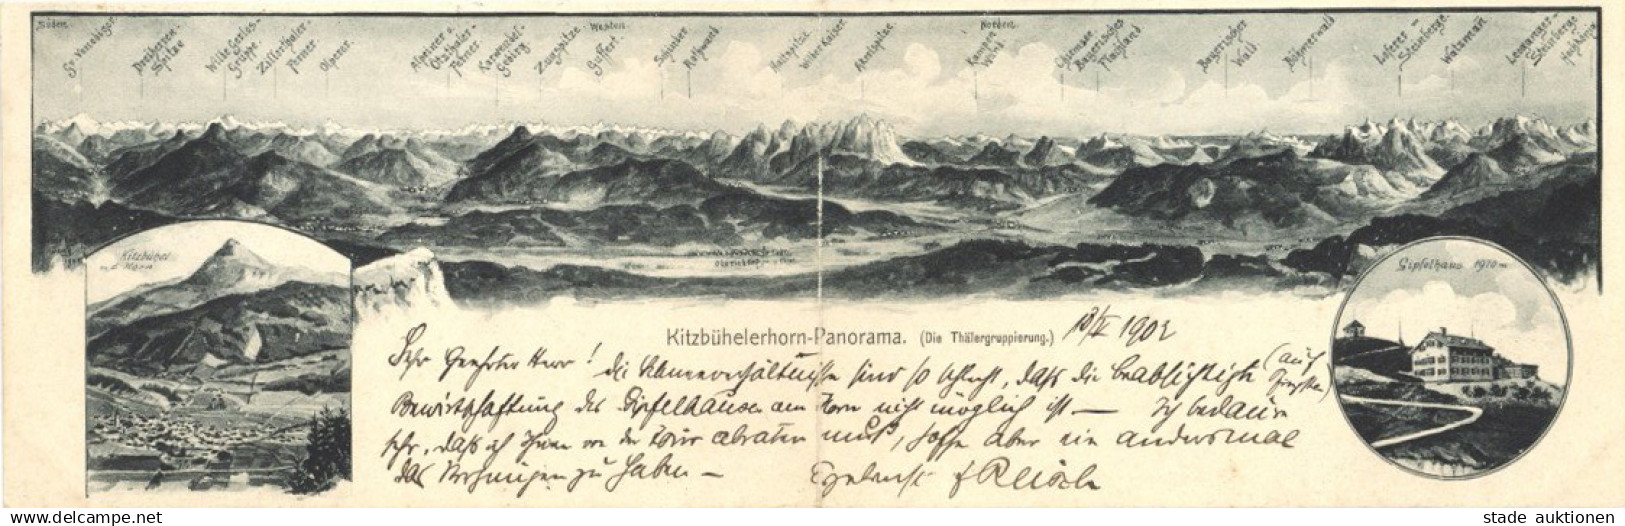 Süden.
Gr. Venediger.
Dreiherren-
Spitze
Wilde Gerlos-
Gruppe.
Zillerthaler-
Ferner.
Olperer.
Alpeiner u.
Oetzthaler-
Ferner
Karwendel-
Gebirg
Zugspitze.
Westen
Guffert.
Schinder
Rothwand
Haltspitze.
Wilder Kaiser.
Norden.
Kampen
Wand
Chiemsee
Bayerisches
Flachland
Bayerischer
Wald
Böhmerwald
Loferer-
Steinberge.
Watzmann
Leoganger-
Steinberge
Kitzbühel
m. d. Horn
Gipfelhaus 1970 m
Kitzbühelerhorn-Panorama. (Die Thälergruppierung.)
18/IV 1902
Sehr Geehrter Herr! die Schneeverhältnisse sind so schlecht, dass die beabsichtigte (auf
Pfingsten)
Bewirtschaftung des Gipfelhauses am Horn nicht möglich ist — Ich bedaure
sehr, dass ich Ihnen von der Tour abraten muss, hoffe aber ein andersmal
das Vergnügen zu haben —
Ergebenst
stade auktionen